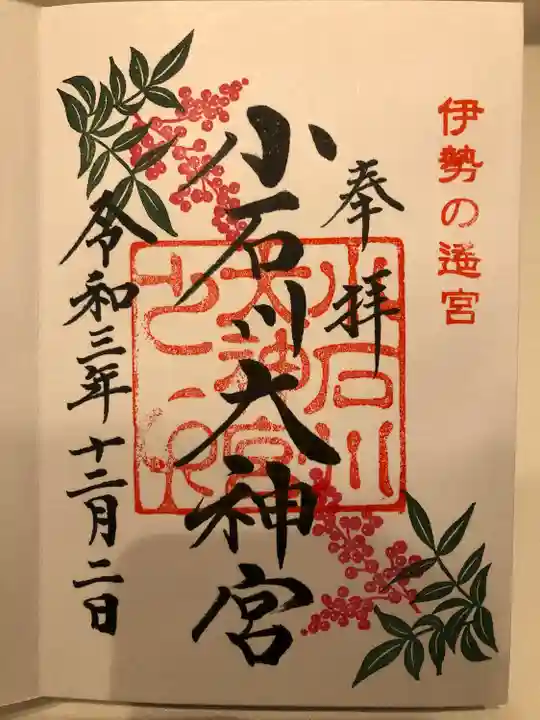 伊勢の遥宮
奉拝
小石川大神宮
小石川
大神宮
之印
令和三年十二月二日